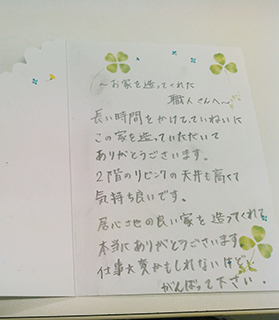 ～お家を造ってくれた
職人さんへ～
長い時間をかけてていねいに
この家を造っていただいて
ありがとうございます。
2階のリビングの天井も高くて
気持ち良いです。
居心地の良い家を造ってくれて
本当にありがとうございます。
仕事大変かもしれないけど
がんばって下さい。